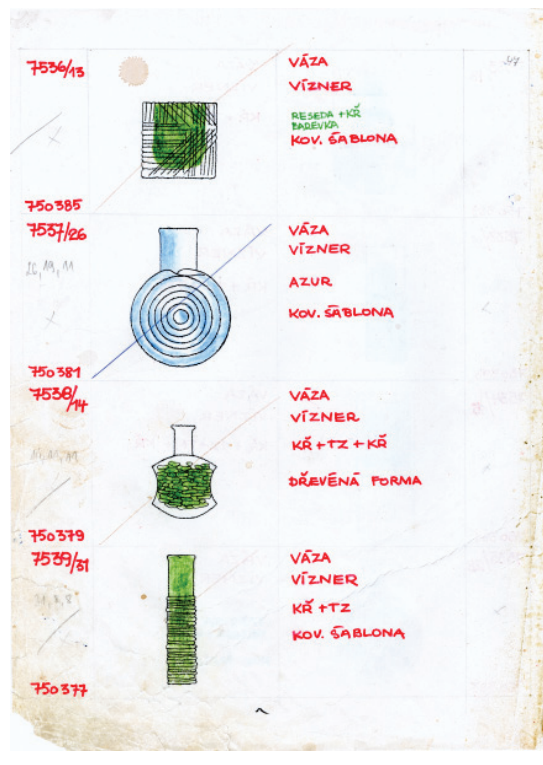 7536/13
VÁZA
VÍZNER
RESEDA + KŘ
BAREVKA
KOV. ŠABLONA
750385
7537/26
VÁZA
VÍZNER
26, 19, 11
AZUR
KOV. ŠABLONA
750381
7538/14
VÁZA
VÍZNER
KŘ + TZ + KŘ
DŘEVĚNÁ FORMA
750379
7539/31
VÁZA
VÍZNER
KŘ + TZ
KOV. ŠABLONA
750377